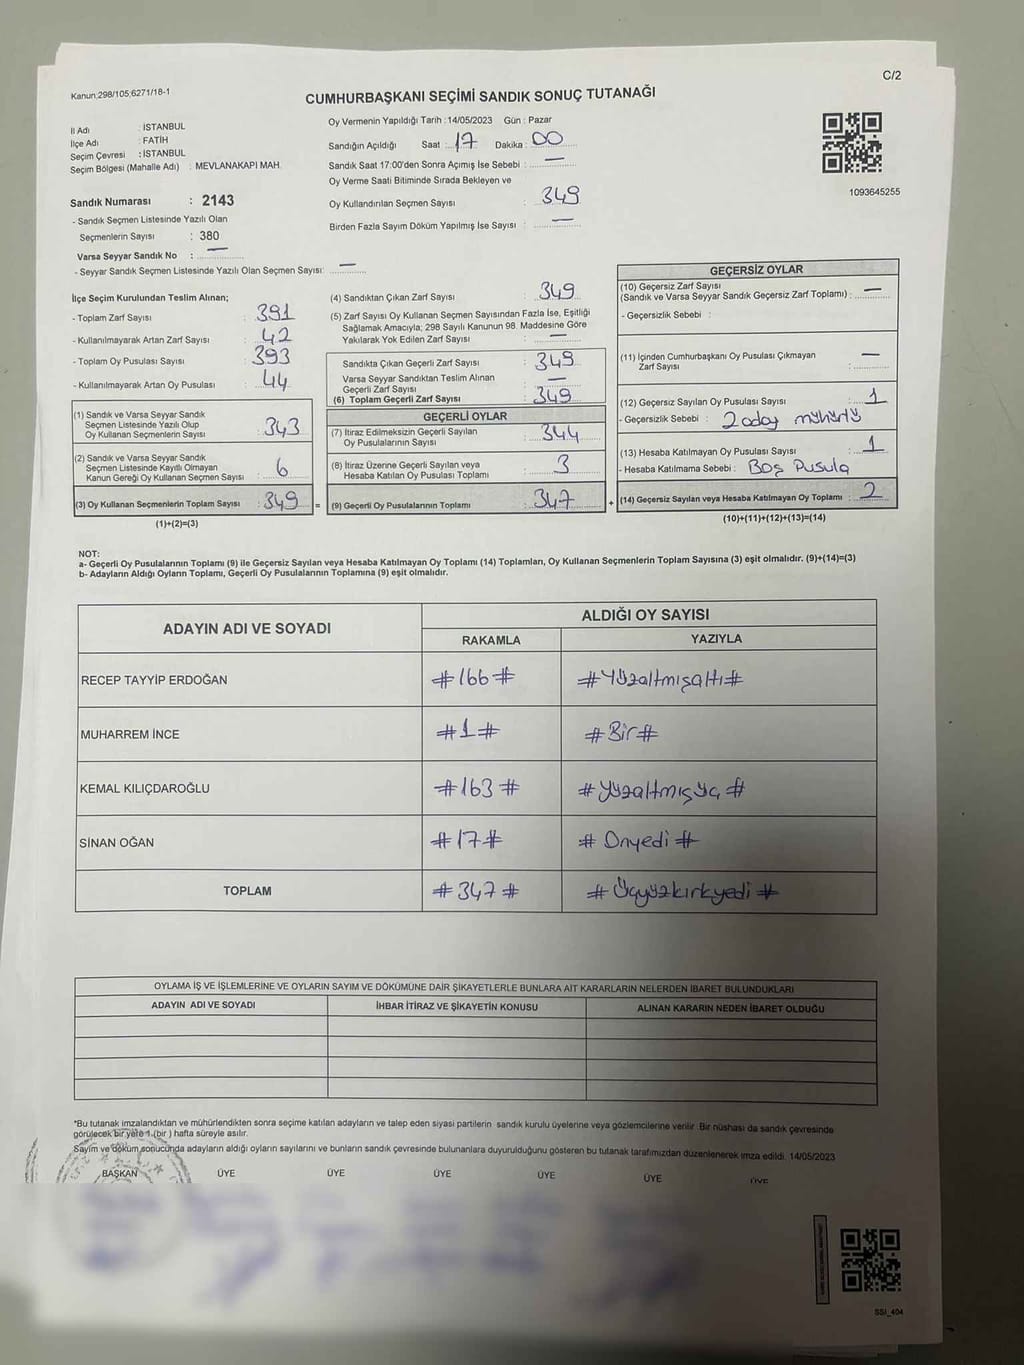 C/2
Kanun;298/105,6271/18-1
CUMHURBAŞKANI SEÇİMİ SANDIK SONUÇ TUTANAĞI
İl Adı : İSTANBUL
İlçe Adı : FATİH
Seçim Çevresi : İSTANBUL
Seçim Bölgesi (Mahalle Adı) : MEVLANAKAPI MAH.
Sandık Numarası : 2143
- Sandık Seçmen Listesinde Yazılı Olan
Seçmenlerin Sayısı : 380
Varsa Seyyar Sandık No : —
- Seyyar Sandık Seçmen Listesinde Yazılı Olan Seçmen Sayısı: —
Oy Vermenin Yapıldığı Tarih : 14/05/2023 Gün : Pazar
Sandığın Açıldığı Saat : 17 Dakika : 00
Sandık Saat 17:00'den Sonra Açımış İse Sebebi : —
Oy Verme Saati Bitiminde Sırada Bekleyen ve
Oy Kullandırılan Seçmen Sayısı : 349
Birden Fazla Sayım Döküm Yapılmış İse Sayısı : —
1093645255
İlçe Seçim Kurulundan Teslim Alınan;
- Toplam Zarf Sayısı : 391
- Kullanılmayarak Artan Zarf Sayısı : 42
- Toplam Oy Pusulası Sayısı : 393
- Kullanılmayarak Artan Oy Pusulası : 44
(1) Sandık ve Varsa Seyyar Sandık
Seçmen Listesinde Yazılı Olup
Oy Kullanan Seçmenlerin Sayısı : 343
(2) Sandık ve Varsa Seyyar Sandık
Seçmen Listesinde Kayıtlı Olmayan
Kanun Gereği Oy Kullanan Seçmen Sayısı : 6
(3) Oy Kullanan Seçmenlerin Toplam Sayısı : 349 =
(1)+(2)=(3)
(4) Sandıktan Çıkan Zarf Sayısı : 349
(5) Zarf Sayısı Oy Kullanan Seçmen Sayısından Fazla İse, Eşitliği
Sağlamak Amacıyla; 298 Sayılı Kanunun 98. Maddesine Göre
Yakılarak Yok Edilen Zarf Sayısı : —
Sandıkta Çıkan Geçerli Zarf Sayısı : 349
Varsa Seyyar Sandıktan Teslim Alınan
Geçerli Zarf Sayısı : —
(6) Toplam Geçerli Zarf Sayısı : 349
GEÇERLİ OYLAR
(7) İtiraz Edilmeksizin Geçerli Sayılan
Oy Pusulalarının Sayısı : 344
(8) İtiraz Üzerine Geçerli Sayılan veya
Hesaba Katılan Oy Pusulası Toplamı : 3
(9) Geçerli Oy Pusulalarının Toplamı : 347 +
GEÇERSİZ OYLAR
(10) Geçersiz Zarf Sayısı
(Sandık ve Varsa Seyyar Sandık Geçersiz Zarf Toplamı) : —
- Geçersizlik Sebebi :
(11) İçinden Cumhurbaşkanı Oy Pusulası Çıkmayan
Zarf Sayısı : —
(12) Geçersiz Sayılan Oy Pusulası Sayısı : 1
- Geçersizlik Sebebi : 2 aday mühürlü
(13) Hesaba Katılmayan Oy Pusulası Sayısı : 1
- Hesaba Katılmama Sebebi : Boş Pusula
(14) Geçersiz Sayılan veya Hesaba Katılmayan Oy Toplamı : 2
(10)+(11)+(12)+(13)=(14)
NOT:
a- Geçerli Oy Pusulalarının Toplamı (9) ile Geçersiz Sayılan veya Hesaba Katılmayan Oy Toplamı (14) Toplamları, Oy Kullanan Seçmenlerin Toplam Sayısına (3) eşit olmalıdır. (9)+(14)=(3)
b- Adayların Aldığı Oyların Toplamı, Geçerli Oy Pusulalarının Toplamına (9) eşit olmalıdır.
ADAYIN ADI VE SOYADI
ALDIĞI OY SAYISI
RAKAMLA YAZIYLA
RECEP TAYYİP ERDOĞAN #166# #Yüzaltmışaltı#
MUHARREM İNCE #1# #Bir#
KEMAL KILIÇDAROĞLU #163# #Yüzaltmışüç#
SİNAN OĞAN #17# #Onyedi#
TOPLAM #347# #Üçyüzkırkyedi#
OYLAMA İŞ VE İŞLEMLERİNE VE OYLARIN SAYIM VE DÖKÜMÜNE DAİR ŞİKAYETLERLE BUNLARA AİT KARARLARIN NELERDEN İBARET BULUNDUKLARI
ADAYIN ADI VE SOYADI İHBAR İTİRAZ VE ŞİKAYETİN KONUSU ALINAN KARARIN NEDEN İBARET OLDUĞU
*Bu tutanak imzalandıktan ve mühürlendikten sonra seçime katılan adayların ve talep eden siyasi partilerin sandık kurulu üyelerine veya gözlemcilerine verilir. Bir nüshası da sandık çevresinde
görülecek bir yere 1 (bir ) hafta süreyle asılır.
Sayım ve döküm sonucunda adayların aldığı oyların sayılarını ve bunların sandık çevresinde bulunanlara duyurulduğunu gösteren bu tutanak tarafımızdan düzenlenerek imza edildi. 14/05/2023
BAŞKAN ÜYE ÜYE ÜYE ÜYE ÜYE ÜYE
SSI_404